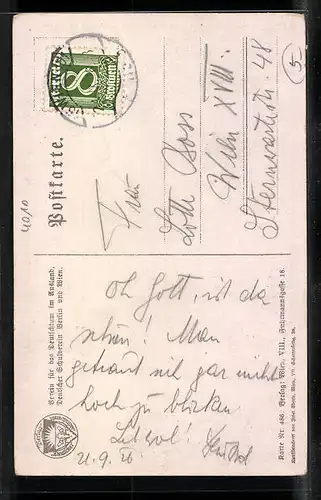 8
Groschen
Postkarte.
Frau
Lotte Boss
Wien XVIII.
Sternwartestr. 48
5
4010
Verein für das Deutschtum im Ausland.
Deutscher Schulverein Berlin und Wien.
Oh Gott, ist da
schön! Man
getraut sich gar nicht
hoch zu blicken
21.9.26
Karte Nr. 486. Verlag: Wien, VIII., Fuhrmannsgasse 18.